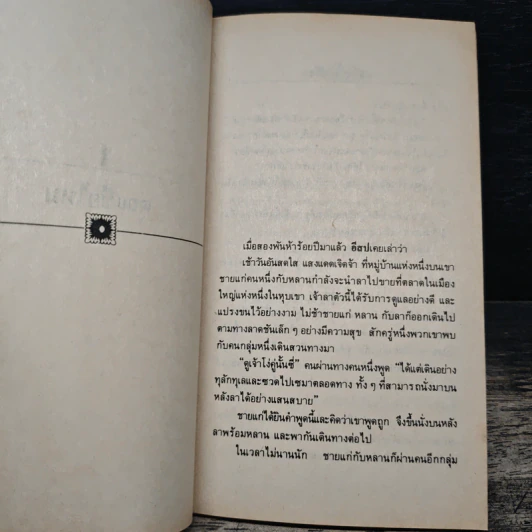 เมื่อสองพันห้าร้อยปีมาแล้ว อีสปเคยเล่าว่า
เช้าวันอันสดใส แสงแดดเจิดจ้า ที่หมู่บ้านแห่งหนึ่งบนเขา
ชายแก่คนหนึ่งกับหลานกำลังจะนำลาไปขายที่ตลาดในเมือง
ใหญ่แห่งหนึ่งในหุบเขา เจ้าลาตัวนี้ได้รับการดูแลอย่างดี และ
แปรงขนไว้อย่างงาม ไม่ช้าชายแก่ หลาน กับลาก็ออกเดินไป
ตามทางลาดชันเล็ก ๆ อย่างมีความสุข สักครู่หนึ่งพวกเขาพบ
กับคนกลุ่มหนึ่งเดินสวนทางมา
"ดูเจ้าโง่คู่นั้นซี่" คนผ่านทางคนหนึ่งพูด "ได้แต่เดินอย่าง
ทุลักทุเลและซวดไปเซมาตลอดทาง ทั้ง ๆ ที่สามารถนั่งมาบน
หลังลาได้อย่างแสนสบาย"
ชายแก่ได้ยินคำพูดนี้และคิดว่าเขาพูดถูก จึงขึ้นนั่งบนหลัง
ลาพร้อมหลาน และพากันเดินทางต่อไป
ในเวลาไม่นานนัก ชายแก่กับหลานก็ผ่านคนอีกกลุ่ม